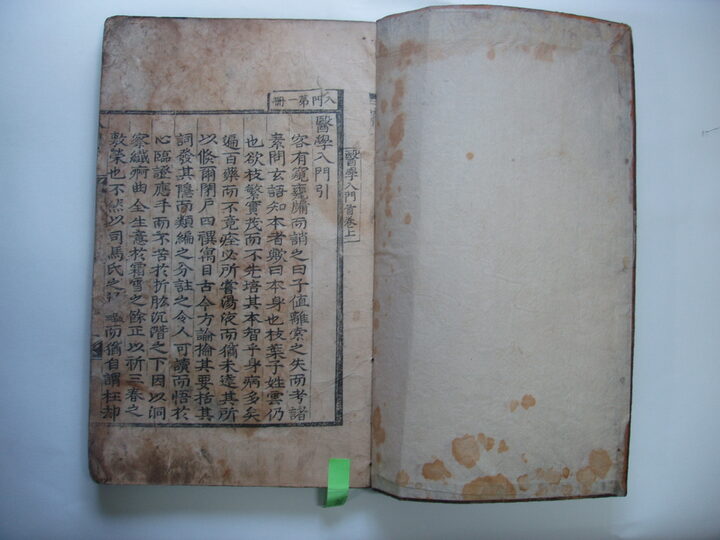 入門第一冊
醫學入門首卷上
醫學入門引
客有窺甕牖而誚之曰子值離索之失而考諸
素問玄語知本者歟曰本身也枝葉子姓雲仍
也欲枝繁實茂而不先培其本智乎身病多矣
遍百藥而不竟痊必所嘗湯液而猶未達其所
以倏爾閉戶四禩寓目古今方論掄其要括其
詞發其隱而類編之分註之令人可讀而悟於
心臨證應手而不苦於折肱沉潛之下因以洞
察纖痾曲全生意於霜雪之餘正以祈三春之
敷榮也不然以司馬氏之而猶自謂枉却